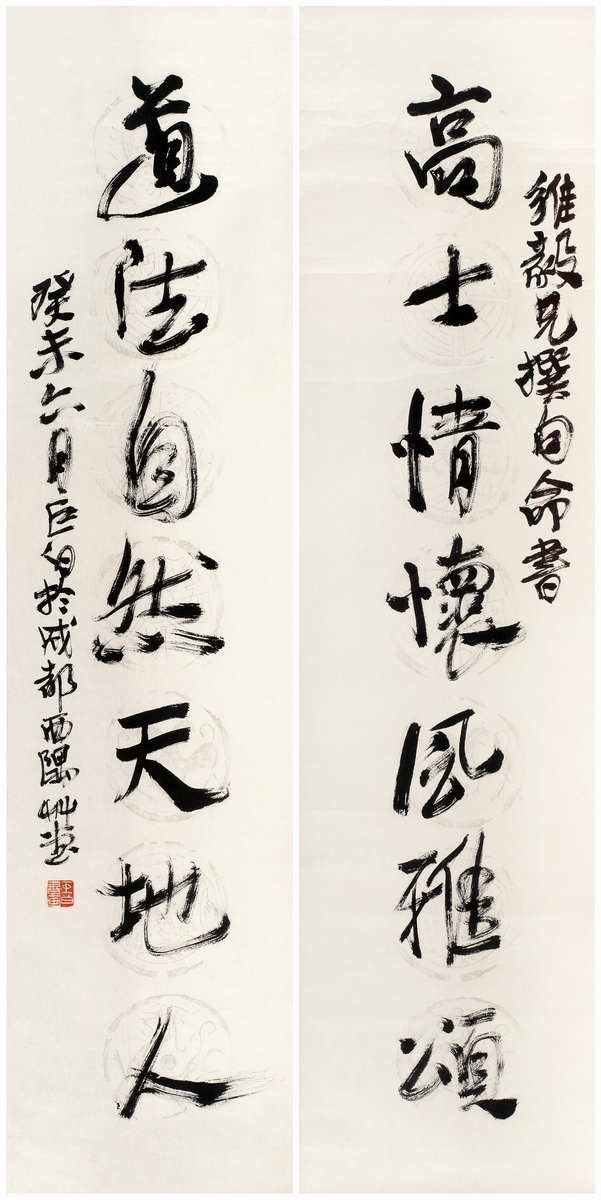 維毅兄撰句命書
高士情懷風雅頌
道法自然天地人
癸未六月於成都西隅艸堂